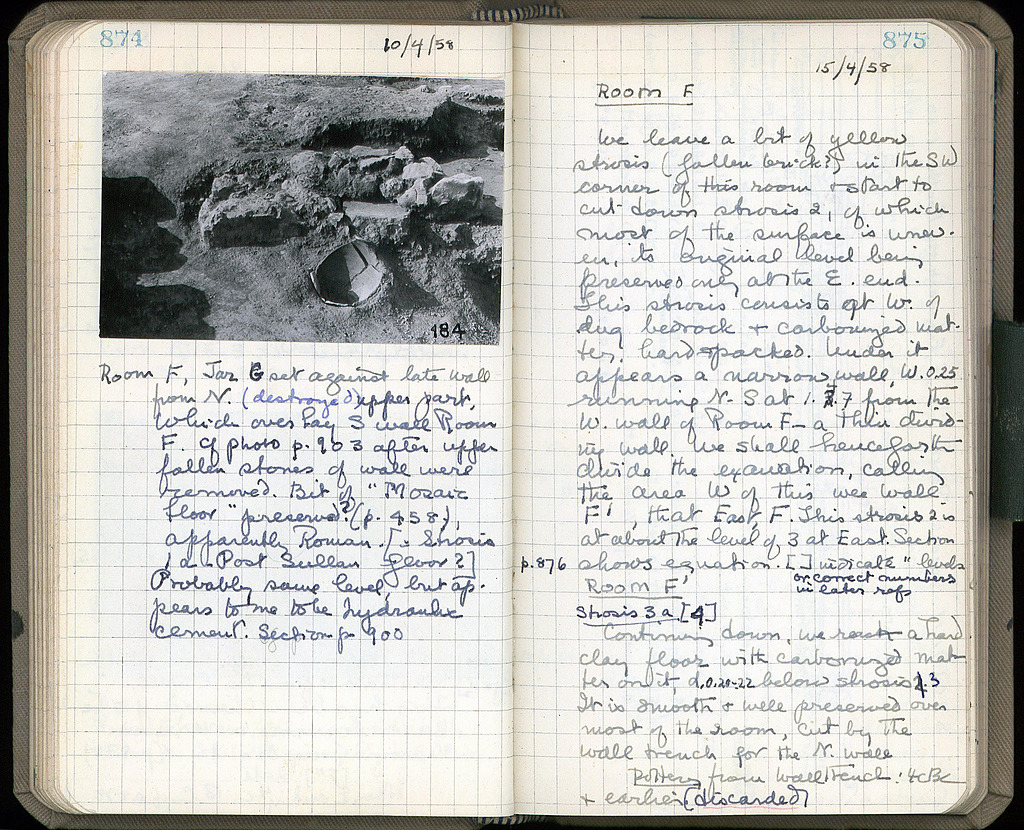 874
10/4/58
184
Room F, Jar G set against late wall
from N. (destroyed) upper part,
which overlay S wall Room
F. Cf photo p. 903 after upper
fallen stones of wall were
removed. Bit of "Mozaic
floor" preserved? (p. 458),
apparently Roman. [= Strosis
1 a Post Sullan floor?]
Probably same level, but ap-
pears to me to be hydraulic
cement. Section p 900
875
15/4/58
Room F
We leave a bit of yellow
strosis (fallen brick?) in the SW
corner of this room & start to
cut down strosis 2, of which
most of the surface is unev-
en, its original level being
preserved only at the E. end.
This strosis consists at W. of
dug bedrock & carbonized mat-
ter, hard packed. Under it
appears a narrow wall, W. 0.25
running N-S at 1.37 from the
W. wall of Room F – a thin divid-
ing wall. We shall henceforth
divide the excavation, calling
the area W of this wee wall
F', that East, F. This strosis 2 is
at about the level of 3 at East. Section
p. 876 shows equation. [ ] indicate "levels
or correct numbers
in later refs
Room F'
Strosis 3a [4]
Continuing down, we reach a hard
clay floor with carbonized mat-
ter on it, d. 0.20-22 below strosis 3
It is smooth & well preserved over
most of the room, cut by the
wall trench for the N. wall
Pottery from wall trench: 4c BC
& earlier (discarded)